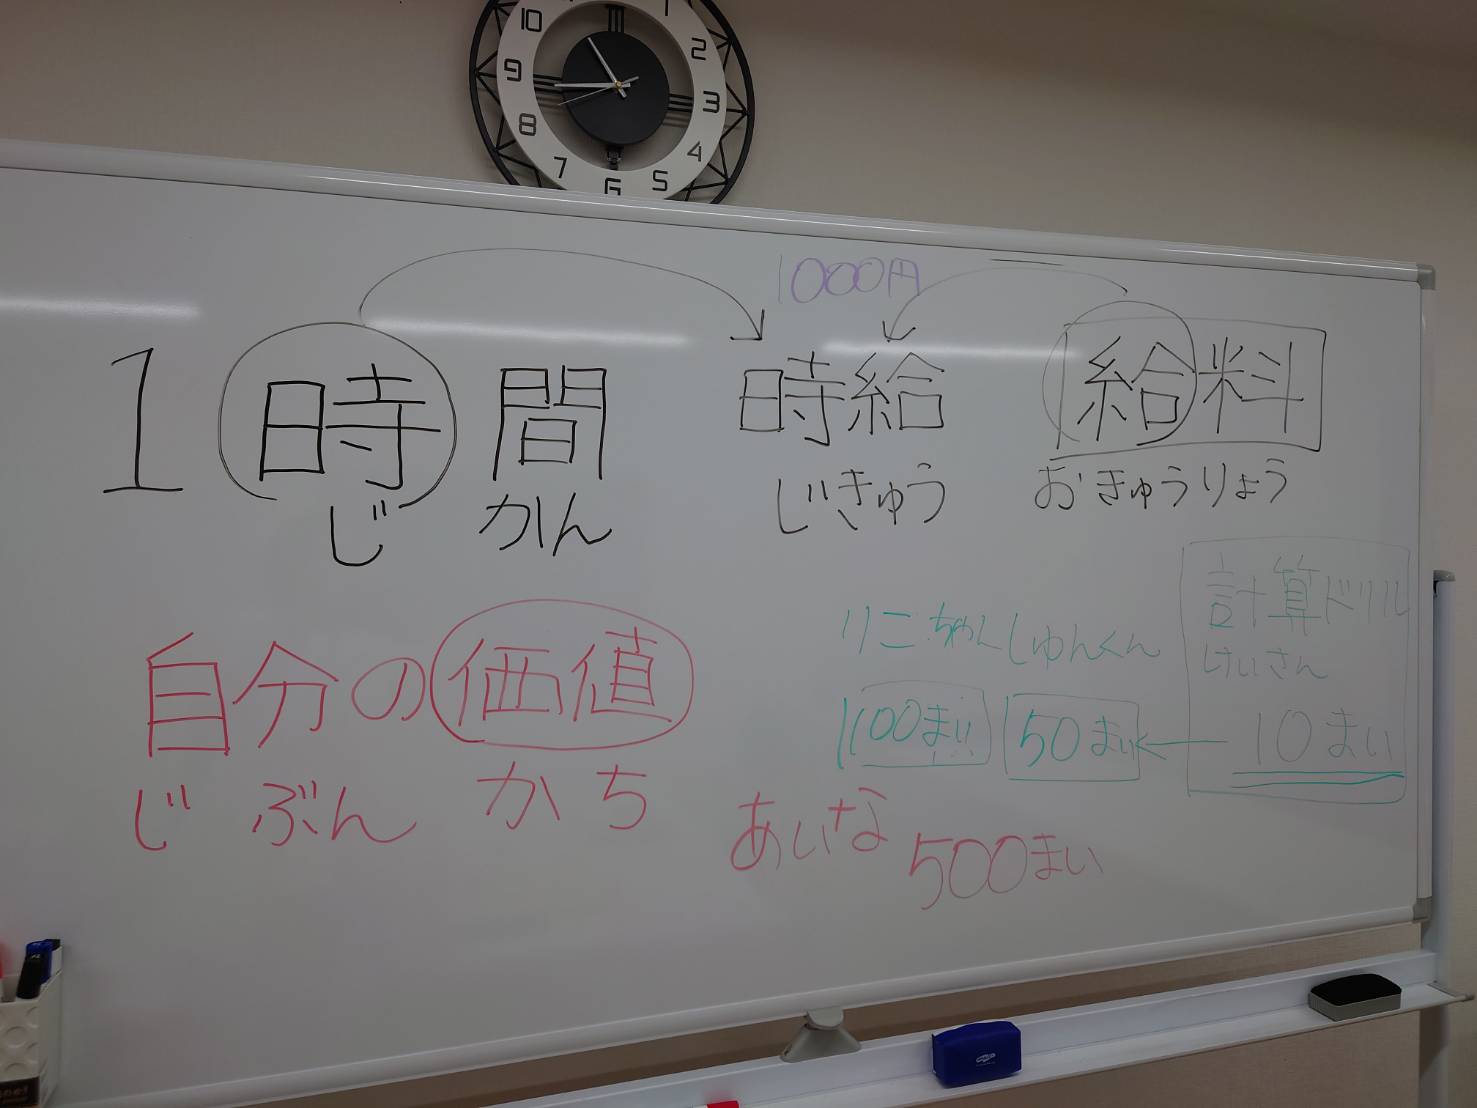 10 1 2 3 4 5 6 7 8 9
1000円
1時間 時給 給料
じ かん じきゅう おきゅうりょう
計算ドリル
けいさん
リこちゃん しゅんくん
100まい 50まい 10まい
自分の価値
じ ぶん かち
あいな 500まい